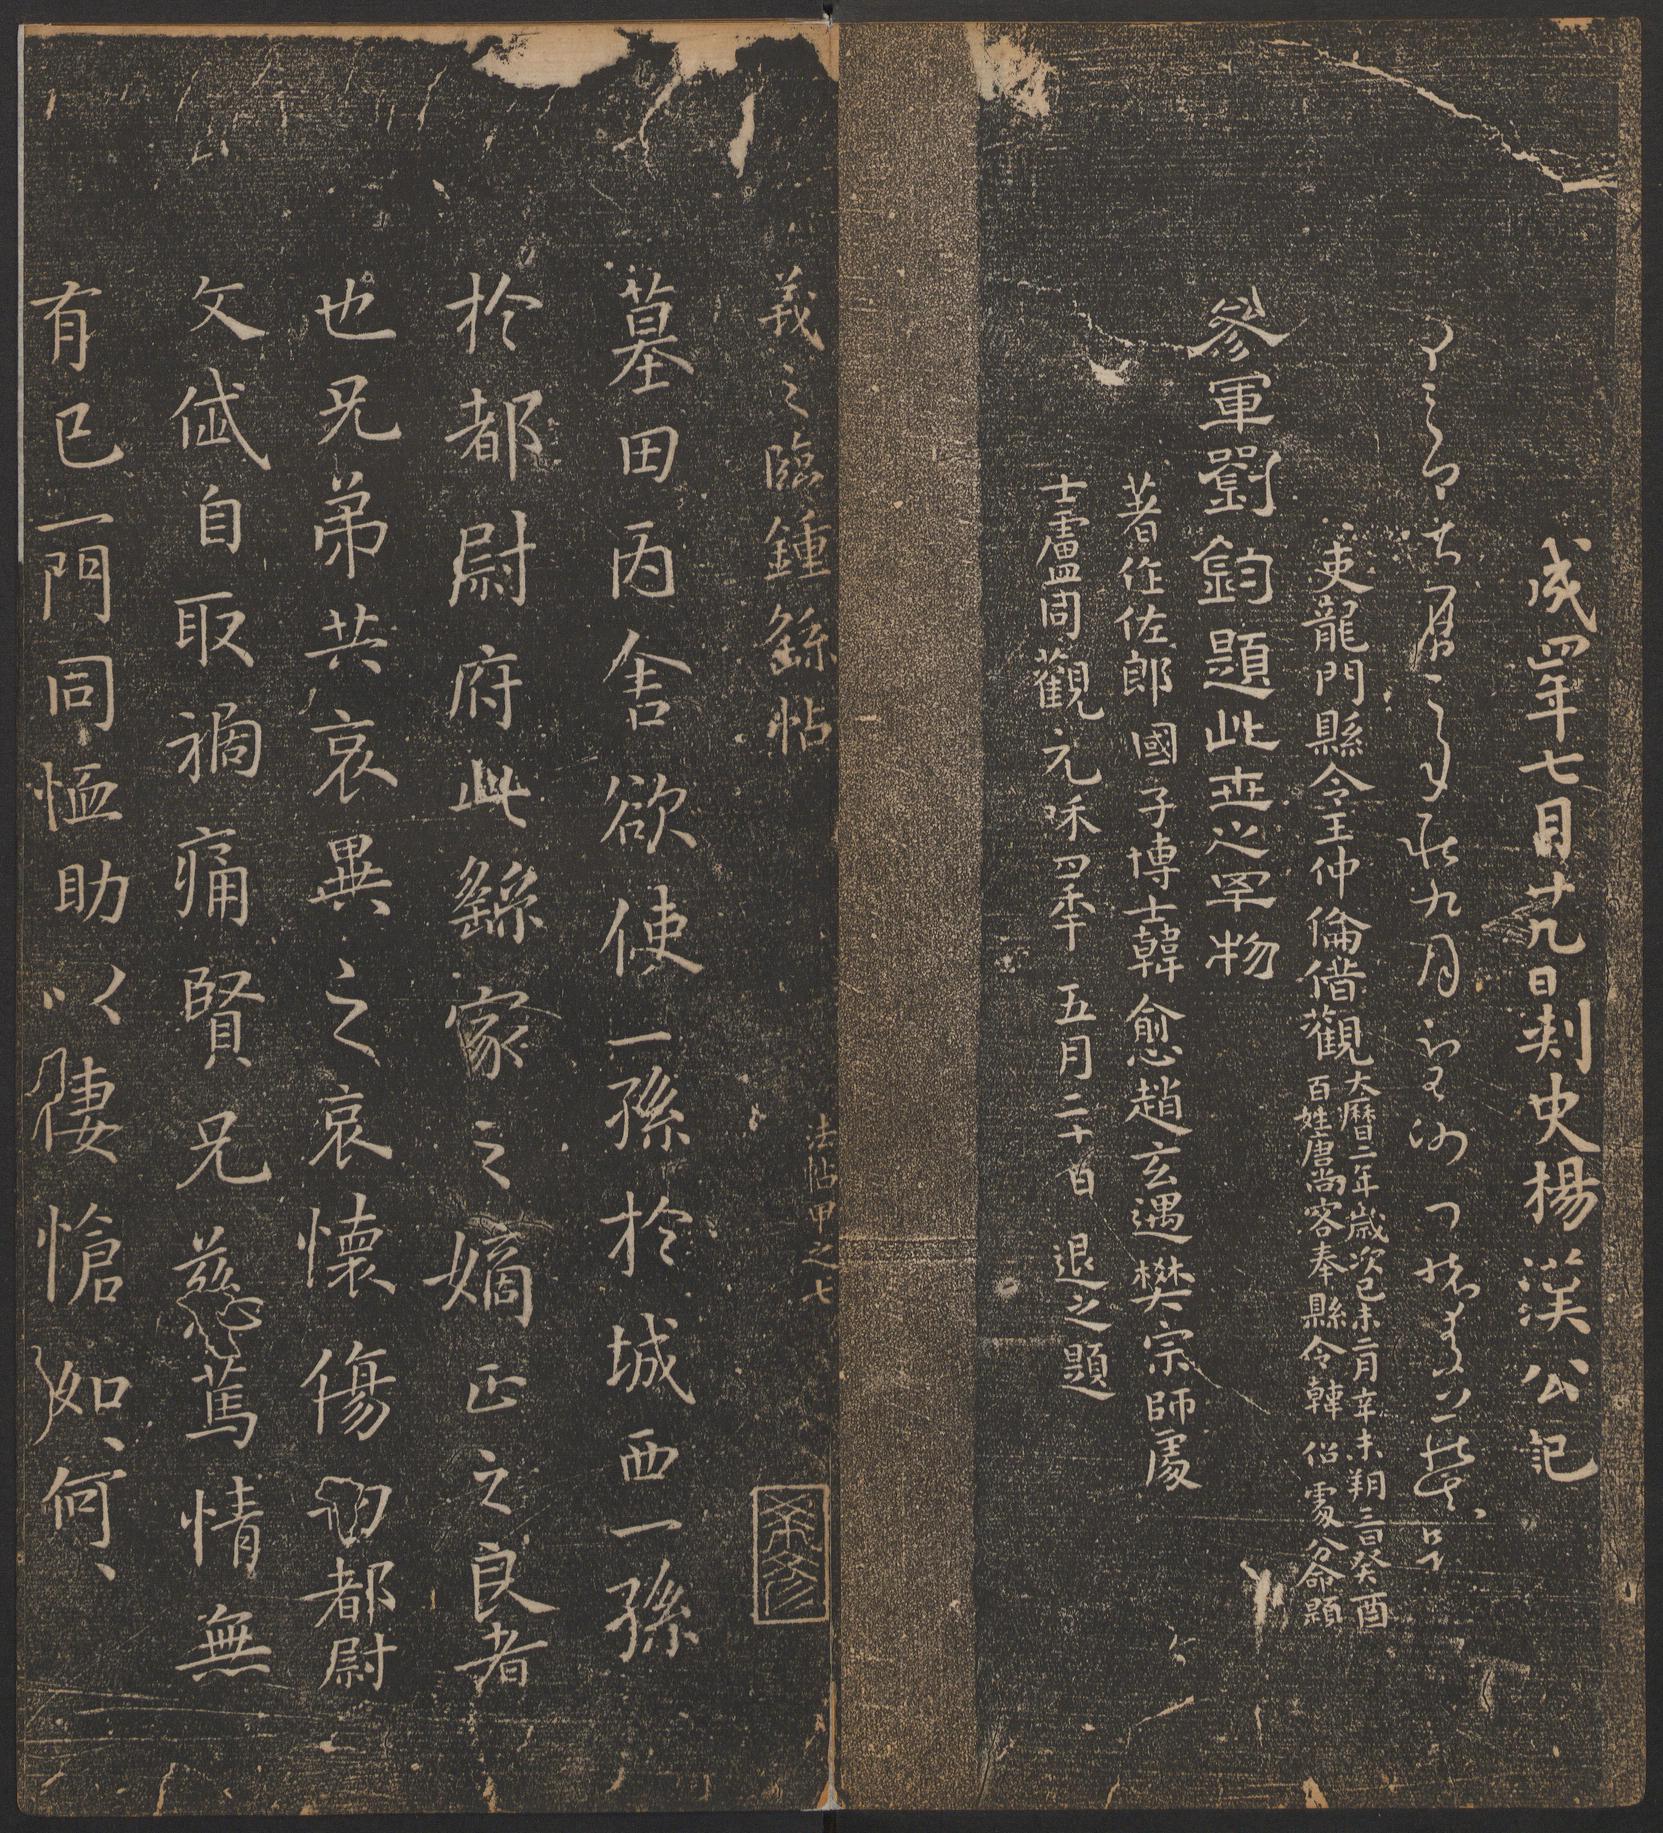 成四年七月廿九日刺史楊漢公記
吏龍門縣令王仲倫借觀
大曆二年歲次己未二月辛未朔三日癸酉
百姓唐尚客奉縣令韓侶處分命題
參軍劉鈞題此世之罕物
著作佐郎國子博士韓愈趙玄遇樊宗師處
士盧同觀元和四年五月二十日退之題
羲之臨鍾繇帖
法帖甲之七
墓田丙舍欲使一孫於城西一孫
於都尉府此繇家之嫡正之良者
也兄弟共哀異之哀懷傷切都尉
文岱自取禍痛賢兄慈篤情無
有已一門同恤助以悽愴如何